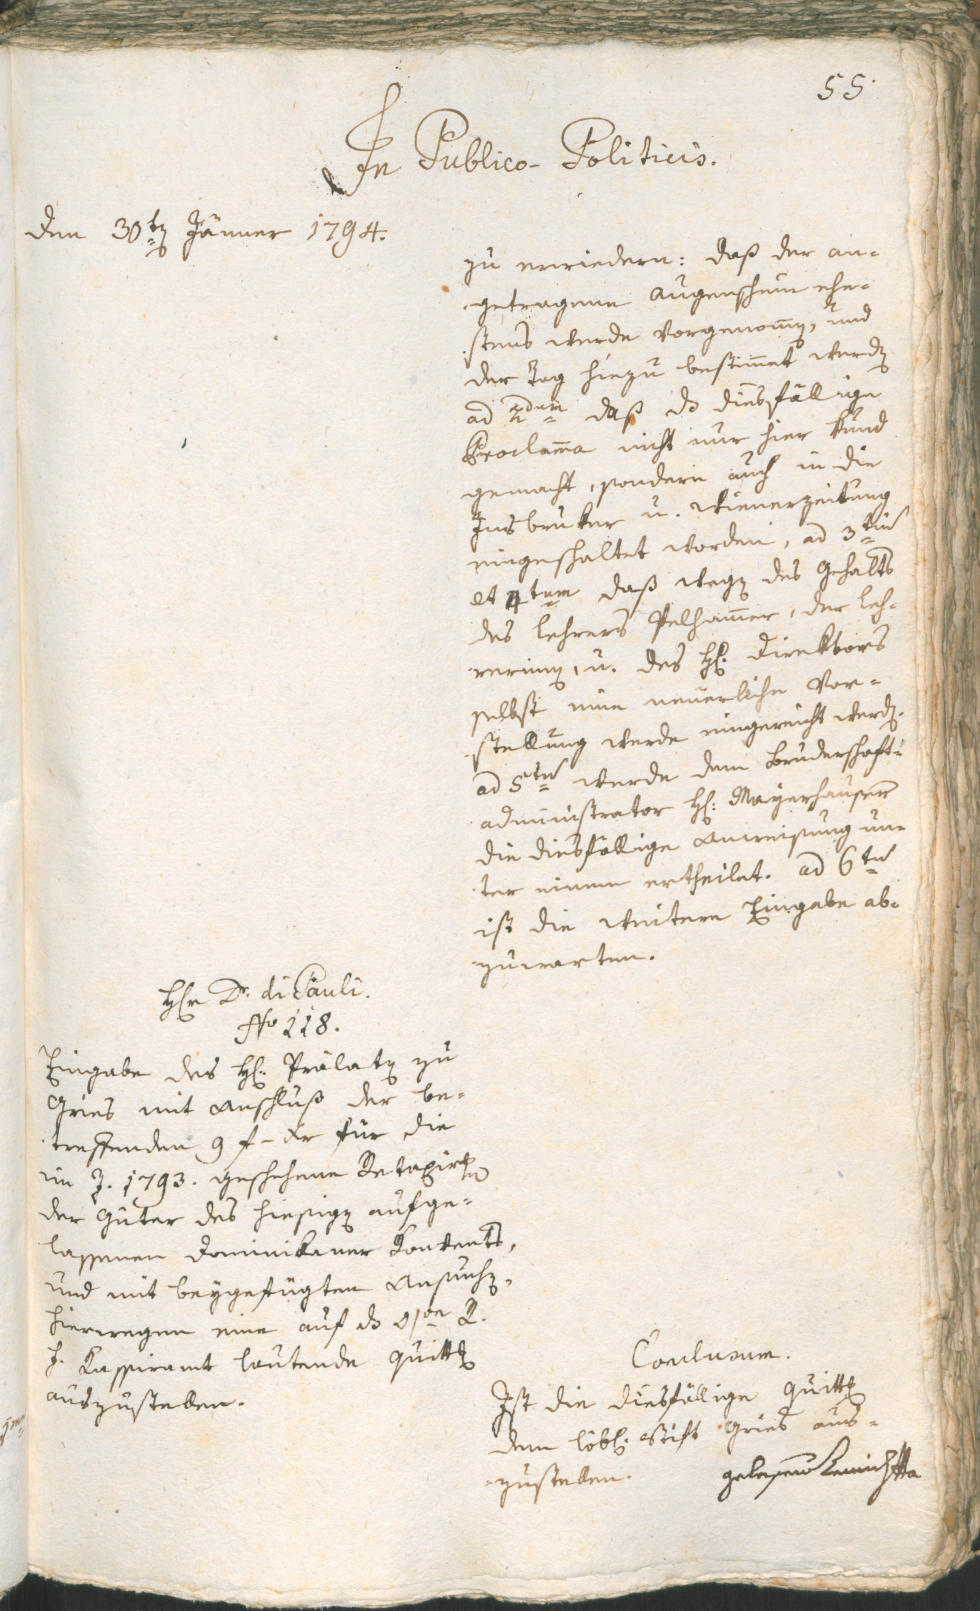 55.
In Publico-Politicis.
Den 30tn Jänner 1794.
zu erwiedern: daß der an-
getragene Augenschein ehe-
stens werde vorgenomm, und
der Tag hiezu bestimmet werd
ad 2dum daß das diesfällige
Proclama nicht nur hier kund
gemacht, sondern auch in die
Insbruker u. Wienerzeitung
eingeschaltet worden, ad 3tium
et 4tum daß weg des Gehalts
des Lehrers Pelhammer, der Leh-
rerinn, u. des H: Direktors
selbst eine neuerliche Vor-
stellung werde eingereicht werd.
ad 5tum werde dem Bruderschaft-
administrator H: Mayrhauser
die diesfällige Anweisung un-
ter einem ertheilet. ad 6tum
ist die weitere Eingabe ab-
zuwarten.
Hr Dr. di Pauli.
No 118.
Eingabe des H: Prälat zu
Gries mit Anschluß der be-
treffenden 9 f – xr für die
im J. 1793. geschehene Retaxir
der Güter des hiesig aufge-
lassenen Dominikaner Konvents,
und mit beygefügten Ansuch,
hierwegen eine auf das
Kassieramt lautende Quitt
auszustellen.
Conclusum.
Ist die diesfällige Quitt
dem löbl: Stift Gries aus-
zustellen.